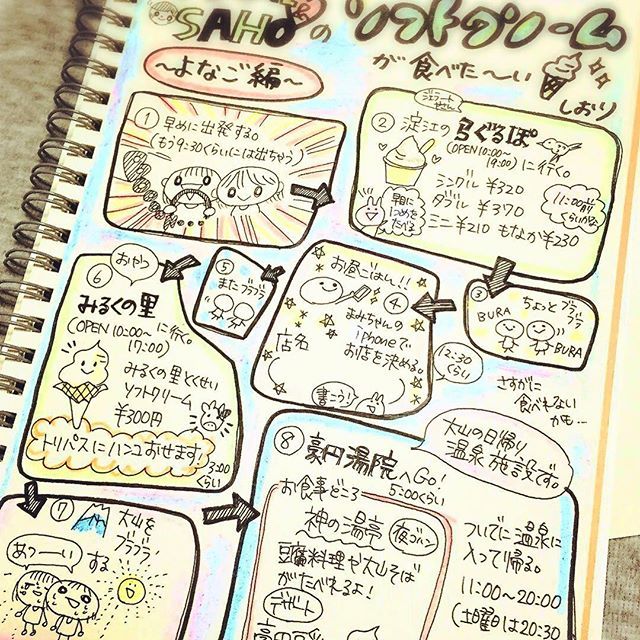 SAHOの ソフトクリーム
が食べた〜い
しおり
〜よなご編〜
①早めに出発する。
(もう9:30くらいには出ちゃう)
ジェラートせんもん
② 淀江の るぐるぽ
(OPEN 10:00〜
19:00)に行く。
シングル ¥320
ダブル ¥370
ミニ ¥210 もなか ¥230
早目に
たべる
11:00前
くらいかな
③ ちょっとブラブラ
BURA
BURA
さすがに
食べれない
かも…
お昼ごはん!!
④
まみちゃんの
iPhoneで
お店を決める。
店名
書こう!
12:30
くらい
⑤
またブラブラ
⑥ おやつ
みるくの里
(OPEN 10:00〜に行く。
17:00)
みるくの里とくせい
ソフトクリーム
¥300円
トリパスにハンコおせます!
3:00
くらい
⑦ 大山を
ブラブラ
する
あつーい
⑧ 豪円湯院へGo!
5:00くらい
大山の日帰り
温泉施設です。
お食事どころ
神の湯亭 夜ゴハン
豆腐料理や大山そば
がたべれるよ!
デザート
豪の豆
ついでに温泉に
入って帰る。
11:00〜20:00
(土曜日は20:30